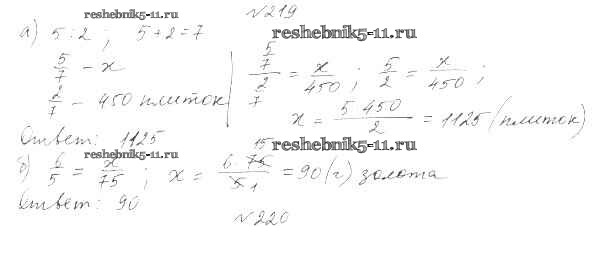 reshebnik5-11.ru №219
а) 5 : 2 ; 5 + 2 = 7 reshebnik5-11.ru
5/7 – x | (5/7)/(2/7) = x/450 ; 5/2 = x/450 ;
2/7 – 450 плиток | x = 5 450/2 = 1125 (плиток)
Ответ: 1125
reshebnik5-11.ru reshebnik5-11.ru
б) 6/5 = x/75 ; x = 6 75 15/5 1 = 90 (г) золота
Ответ: 90
№220